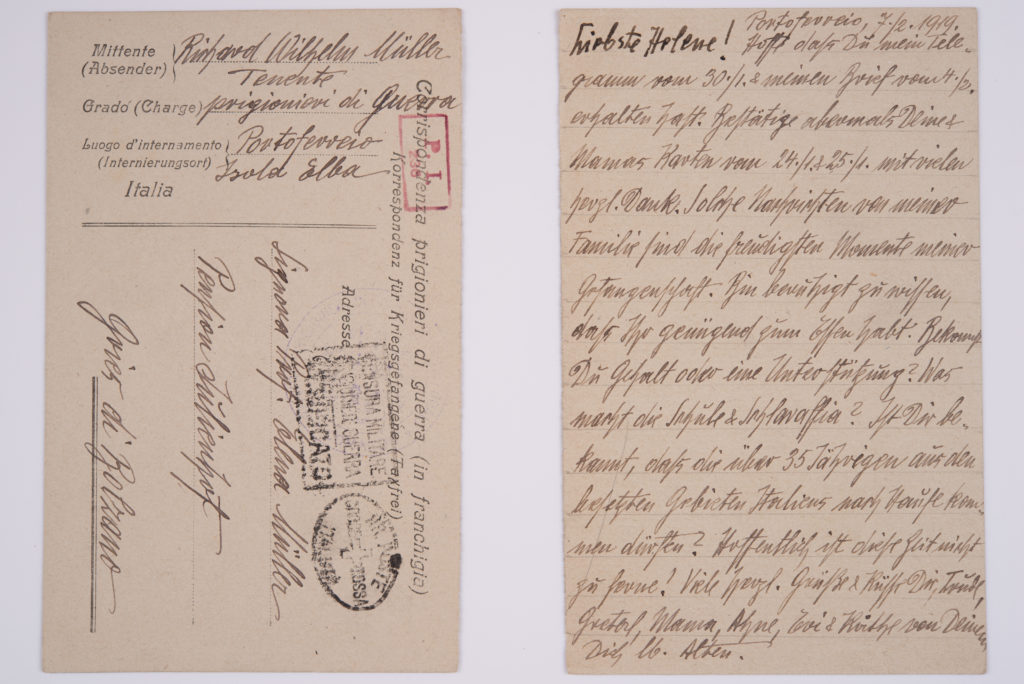 Mittente
(Absender)
Richard Wilhelm Müller
Tenente
Grado (Charge) prigionieri di Guerra
Luogo d'internamento
(Internierungsort)
Portoferreio
Isold Elba
Italia
Corrispondenza prigionieri di guerra (in franchigia)
Korrespondenz für Kriegsgefangene (Taxfrei)
P. I.
Adresse
CENSURA MILITARE
PRIGIONIERI GUERRA
Signora Müller
Pension Julienhof
Gries di Bolzano
Portoferreio, 7./2. 1919.
Liebste Helene! Hoffe daß Du mein Tele-
gramm vom 30./1. & meinen Brief vom 4./2.
erhalten hast. Bestätige abermals Deine &
Mamas Karten vom 24./1. & 25./1. mit vielen
herzl. Dank. Solche Nachrichten von meiner
Familie sind die freudigsten Momente meiner
Gefangenschaft. Bin beruhigt zu wissen,
daß Ihr genügend zum Essen habt. Bekommst
Du Gehalt oder eine Unterstützung? Was
macht die Schule & Schlaraffia? Ist Dir be-
kannt, daß die über 35 Jährigen aus den
besetzten Gebieten Italiens nach Hause kom-
men dürfen? Hoffentlich ist diese Zeit nicht
zu ferne! Viele herzl. Grüße & Küsse Dir, Trude,
Gretel, Mama, Evi & Käthe von Deinem
Dich lb. Alten.